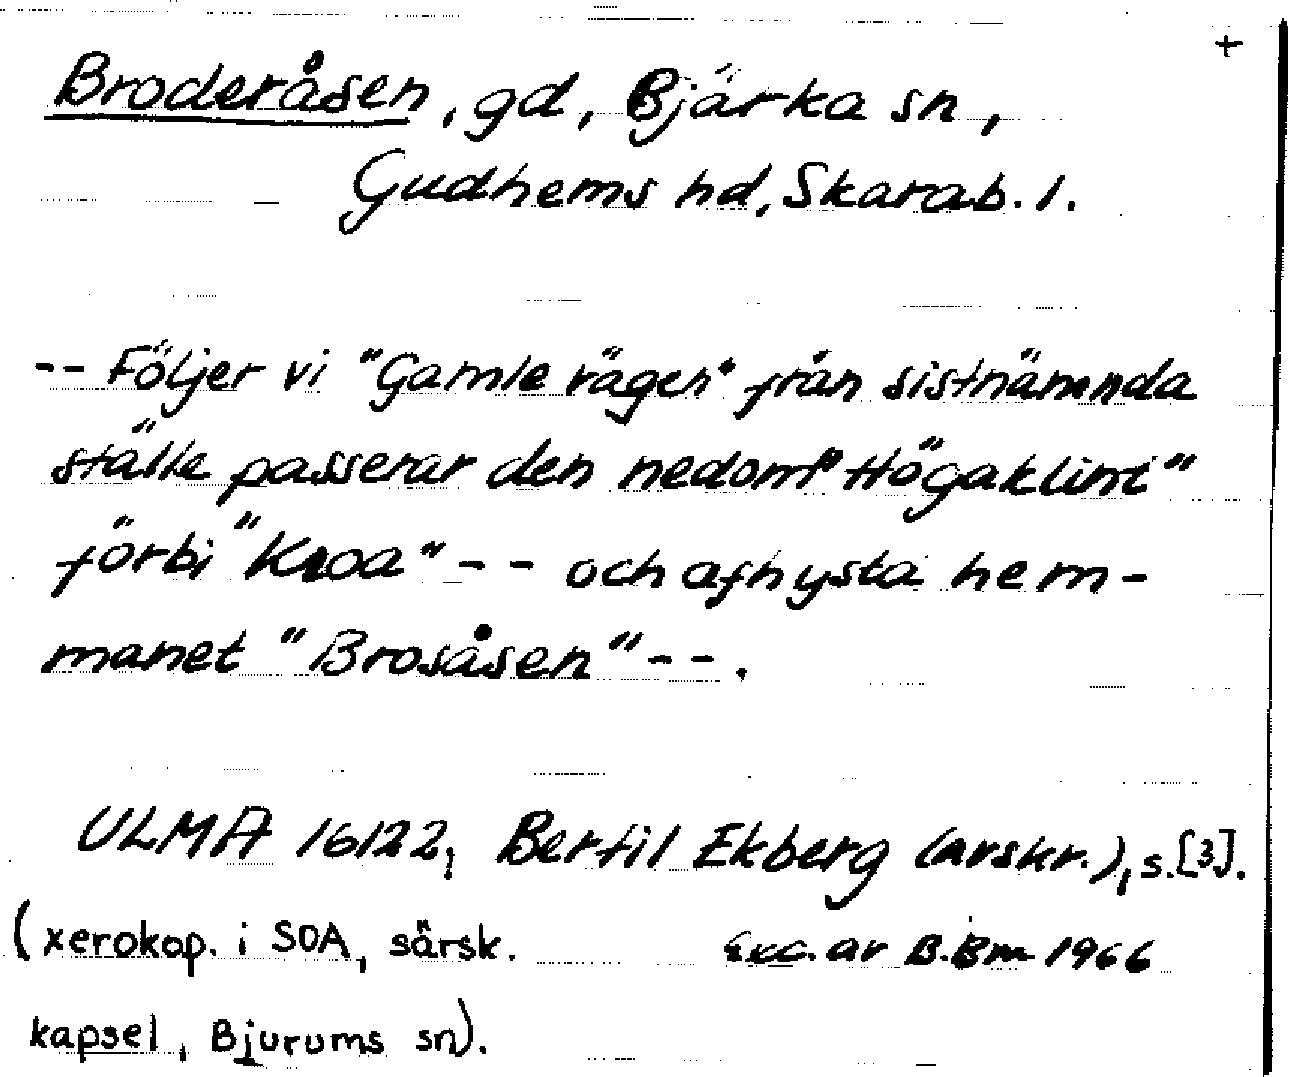 +
Broderåsen, gd, Bjärka sn,
Gudhems hd, Skarab. l.
-- Följer vi "Gamle vägen" från sistnämnda
ställe passerar den nedom "Högaklint"
förbi "Kroa" -- och afhysta hem-
manet "Brosåsen" --.
ULMA 16122, Bertil Ekberg (avskr.), s.[3].
(xerokop. i SOA, särsk.
Exc. av B.Bm 1966
kapsel, Bjurums sn).